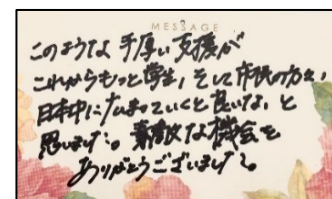 MESSAGE
このような手厚い支援が
これからもっと学生、そして市民の方々、
日本中に広まっていくと良いな、と
思います。素敵な機会を
ありがとうございました。